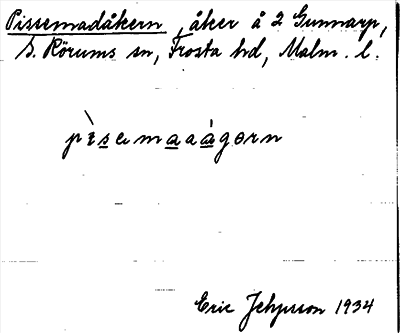 Pissemadåkern, åker å 2 Gunnarp,
S. Rörums sn, Frosta hd, Malm. l.
pìsema aágɵrn
Eric Jehpsson 1934